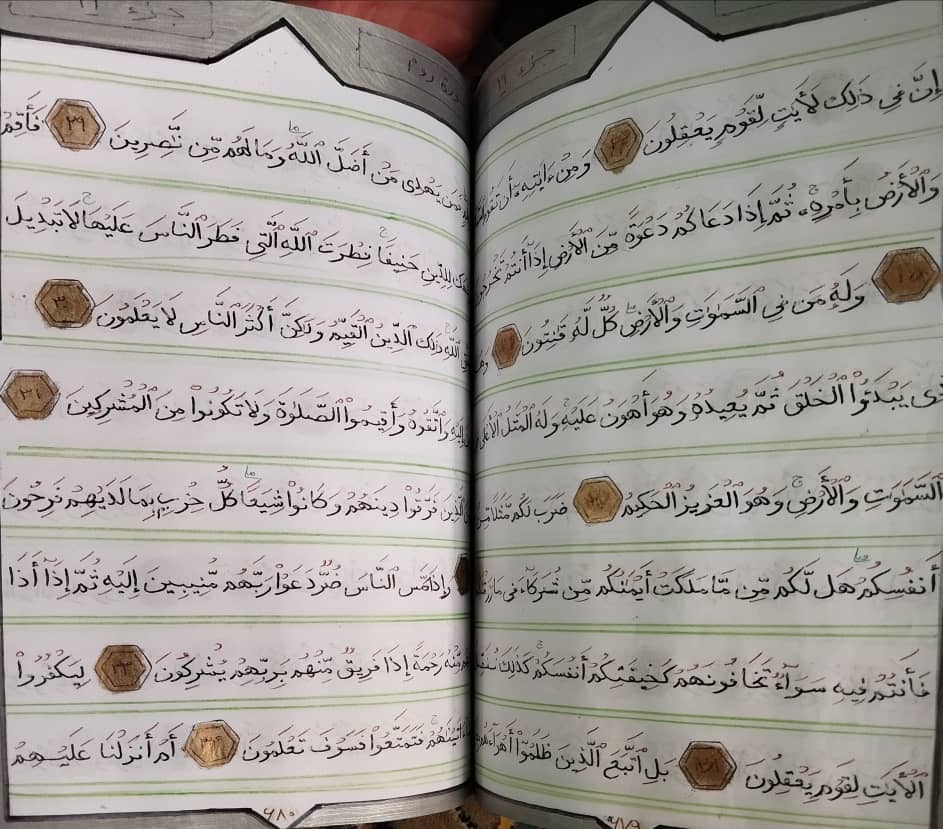 جزء ٢١
إِنَّ فِي ذَٰلِكَ لَأَيَٰتٍ لِّقَوْمٍ يَعْقِلُونَ ٢٤ وَمِنْ ءَايَٰتِهِ أَن تَقُومَ
وَالْأَرْضُ بِأَمْرِهِ ۚ ثُمَّ إِذَا دَعَاكُمْ دَعْوَةً مِّنَ الْأَرْضِ إِذَا أَنتُمْ تَخْرُجُونَ
٢٥ وَلَهُ مَن فِي السَّمَٰوَٰتِ وَالْأَرْضِ كُلٌّ لَّهُ قَٰنِتُونَ ٢٦
يَبْدَؤُا الْخَلْقَ ثُمَّ يُعِيدُهُ وَهُوَ أَهْوَنُ عَلَيْهِ وَلَهُ الْمَثَلُ الْأَعْلَىٰ
السَّمَٰوَٰتِ وَالْأَرْضِ ۚ وَهُوَ الْعَزِيزُ الْحَكِيمُ ٢٧ ضَرَبَ لَكُم مَّثَلًا مِّنْ
أَنفُسِكُمْ هَل لَّكُم مِّن مَّا مَلَكَتْ أَيْمَٰنُكُم مِّن شُرَكَاءَ فِي مَا
فَأَنتُمْ فِيهِ سَوَاءٌ تَخَافُونَهُمْ كَخِيفَتِكُمْ أَنفُسَكُمْ ۚ كَذَٰلِكَ
الْأَيَٰتِ لِقَوْمٍ يَعْقِلُونَ ٢٨ بَلِ اتَّبَعَ الَّذِينَ ظَلَمُوا أَهْوَاءَهُم
۶۷۹
سورة روم
جزء ٢١
فَمَن يَهْدِي مَنْ أَضَلَّ اللَّهُ وَمَا لَهُم مِّن نَّٰصِرِينَ ٢٩ فَأَقِمْ
لِلدِّينِ حَنِيفًا ۚ فِطْرَتَ اللَّهِ الَّتِي فَطَرَ النَّاسَ عَلَيْهَا ۚ لَا تَبْدِيلَ
اللَّهِ ۚ ذَٰلِكَ الدِّينُ الْقَيِّمُ وَلَٰكِنَّ أَكْثَرَ النَّاسِ لَا يَعْلَمُونَ ٣٠
إِلَيْهِ وَاتَّقُوهُ وَأَقِيمُوا الصَّلَوٰةَ وَلَا تَكُونُوا مِنَ الْمُشْرِكِينَ ٣١
الَّذِينَ فَرَّقُوا دِينَهُمْ وَكَانُوا شِيَعًا كُلُّ حِزْبٍ بِمَا لَدَيْهِمْ فَرِحُونَ
وَإِذَا مَسَّ النَّاسَ ضُرٌّ دَعَوْا رَبَّهُم مُّنِيبِينَ إِلَيْهِ ثُمَّ إِذَا أَذَا
مِّنْهُ رَحْمَةً إِذَا فَرِيقٌ مِّنْهُم بِرَبِّهِمْ يُشْرِكُونَ ٣٣ لِيَكْفُرُوا
ءَاتَيْنَٰهُمْ ۚ فَتَمَتَّعُوا فَسَوْفَ تَعْلَمُونَ ٣٤ أَمْ أَنزَلْنَا عَلَيْهِمْ
۶۸۰